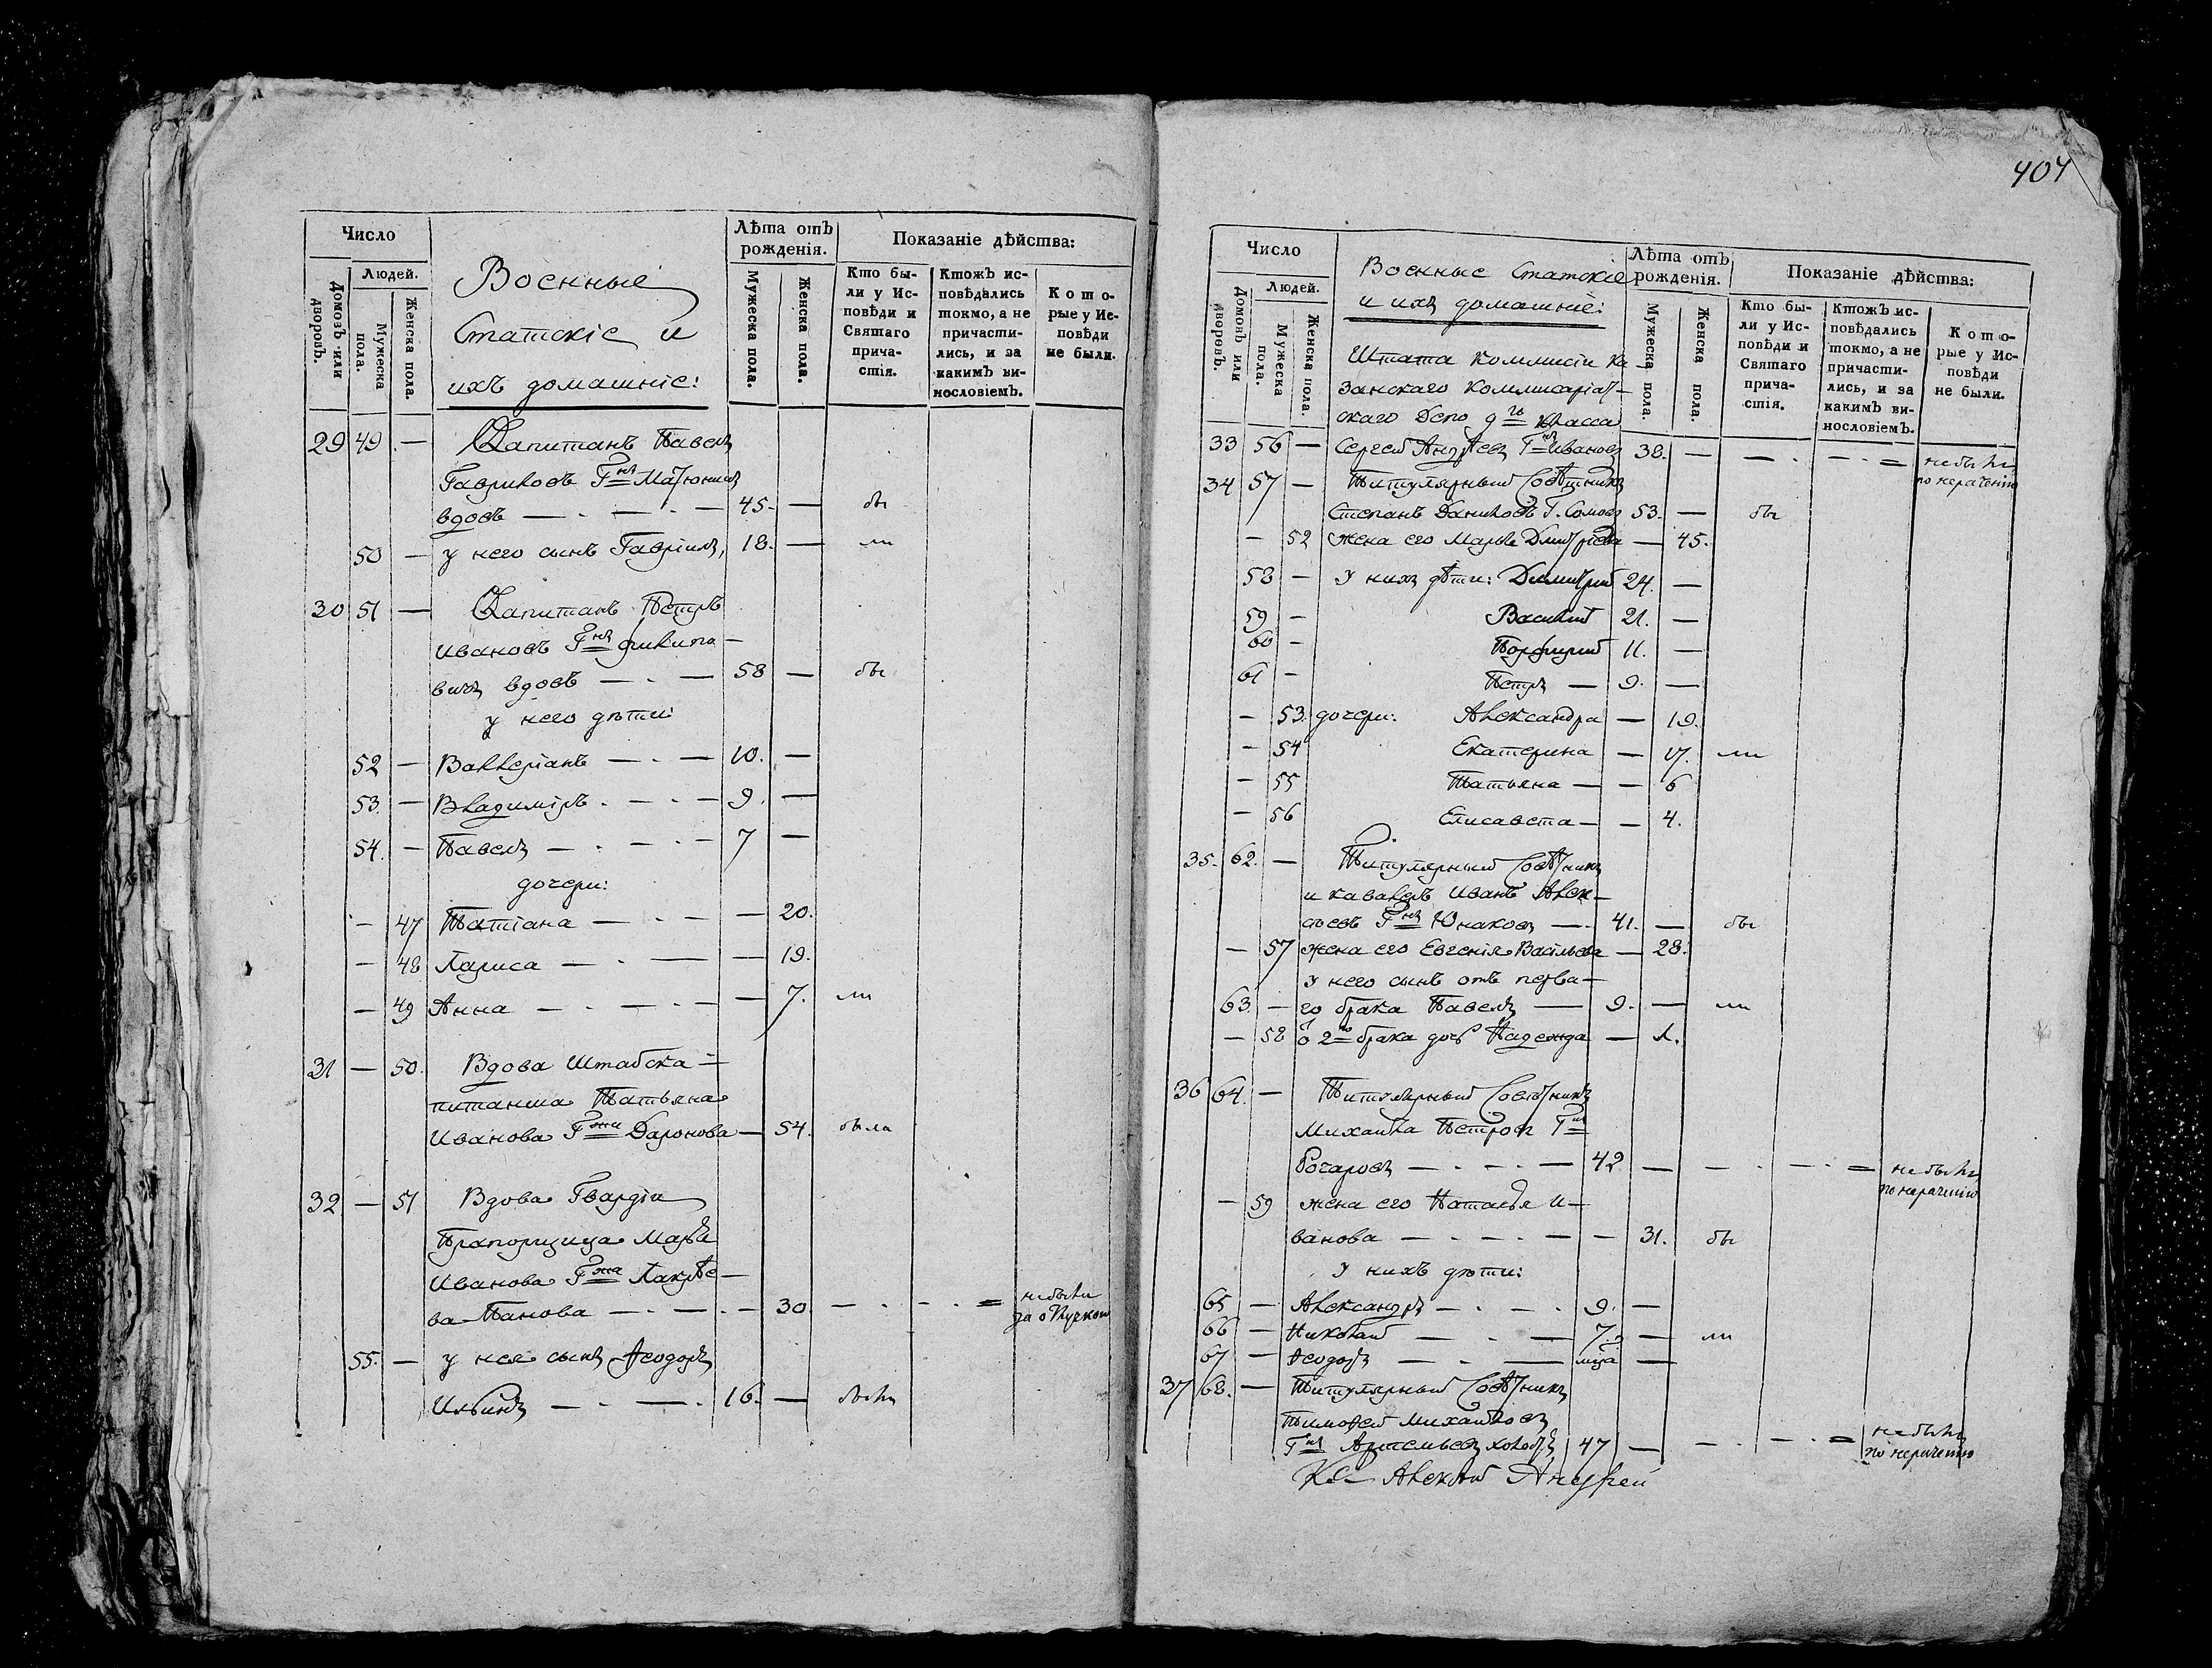 Число
Лѣта отъ рожденія.
Показаніе дѣйства:
Домовъ или дворовъ.
Людей.
Мужеска пола.
Женска пола.
Военные
Статскіе и
ихъ домашніе:
Мужеска пола.
Женска пола.
Кто были у Исповѣди и Святаго причастія.
Ктожъ исповѣдались токмо, а не причастились, и за какимъ винословіемъ.
Которые у Исповѣди не были.
29 49 — Капитанъ Павелъ
Гавриловъ Гнъ
вдовъ — - — - — 45. — бы
50 — у него сынъ Гавріилъ, 18. — ли
30 51 — Капитанъ Петръ
Ивановъ Гнъ
вичъ вдовъ — - — 58 — бы
у него дѣти:
52 — Валлеріанъ — - — 10. —
53. — Владиміръ - — - — 9. —
54. — Павелъ — - — - — 7 —
дочери:
— 47 Татіана — - — — 20.
— 48 Лариса — - — — 19.
— 49 Анна — - — - — — 7. ли
31 — 50. Вдова Штабска-
питанша Татьяна
Иванова Гжа Даронова — 54. была
32 — 51 Вдова Гвардіи
Прапорщица Марья
Иванова Гжа
ва Панова — - — - — 30. — - — - = не были
за отлучкою
55. — у нея сынъ Ѳеодоръ
Ильинъ — - — - 16. — были
404
Число
Лѣта отъ рожденія.
Показаніе дѣйства:
Домовъ или дворовъ.
Людей.
Мужеска пола.
Женска пола.
Военные Статскіе
и ихъ домашніе:
Мужеска пола.
Женска пола.
Кто были у Исповѣди и Святаго причастія.
Ктожъ исповѣдались токмо, а не причастились, и за какимъ винословіемъ.
Которые у Исповѣди не были.
Штата Коммисіи Ка-
занскаго Коммисаріат-
скаго Депо 9го класса
33 56 — Сергей Андреевъ Гнъ Ивановъ 38. — — - — - = не были
по нераченію
34 57 — Титулярный Совѣтникъ
Степанъ Даниловъ Г. Сомовъ 53. — бы
— 52 жена его Марья Дмитріева — 45.
58 — У нихъ дѣти: Димитрій 24. —
59 — Василій 21. —
60 — Порфирій 11. —
61 — Петръ — 9. —
— 53. дочери: Александра — 19.
— 54 Екатерина — 17. ли
— 55 Татьяна — — 6
— 56 Елисавета — — 4.
35. 62. — Титулярный Совѣтникъ
и кавалеръ Иванъ Алек-
сѣевъ Гнъ Юнаковъ — 41. — бы
— 57 жена его Евгенія Васильева — 28.
у него сынъ отъ перва-
63. — го брака Павелъ — 9. — ли
— 58 2го брака дочь Надежда — 1.
36 64. — Титулярный Совѣтникъ
Михайла Петровъ Гнъ
Бочаровъ — - — - — 42 — — - — - = не были
по нераченію
— 59 жена его Наталья И-
ванова — - — - — — 31. бы
У нихъ дѣти:
65 — Александръ — - — - 9. —
66 — Николай — - — 7. — ли
67 — Ѳеодоръ — - — мца —
37 68. — Титулярный Совѣтникъ
Тимоѳей Михайловъ
Гнъ Артемьевъ холостъ 47 — — - — - = не были
по нераченію
Алексѣй Андреи